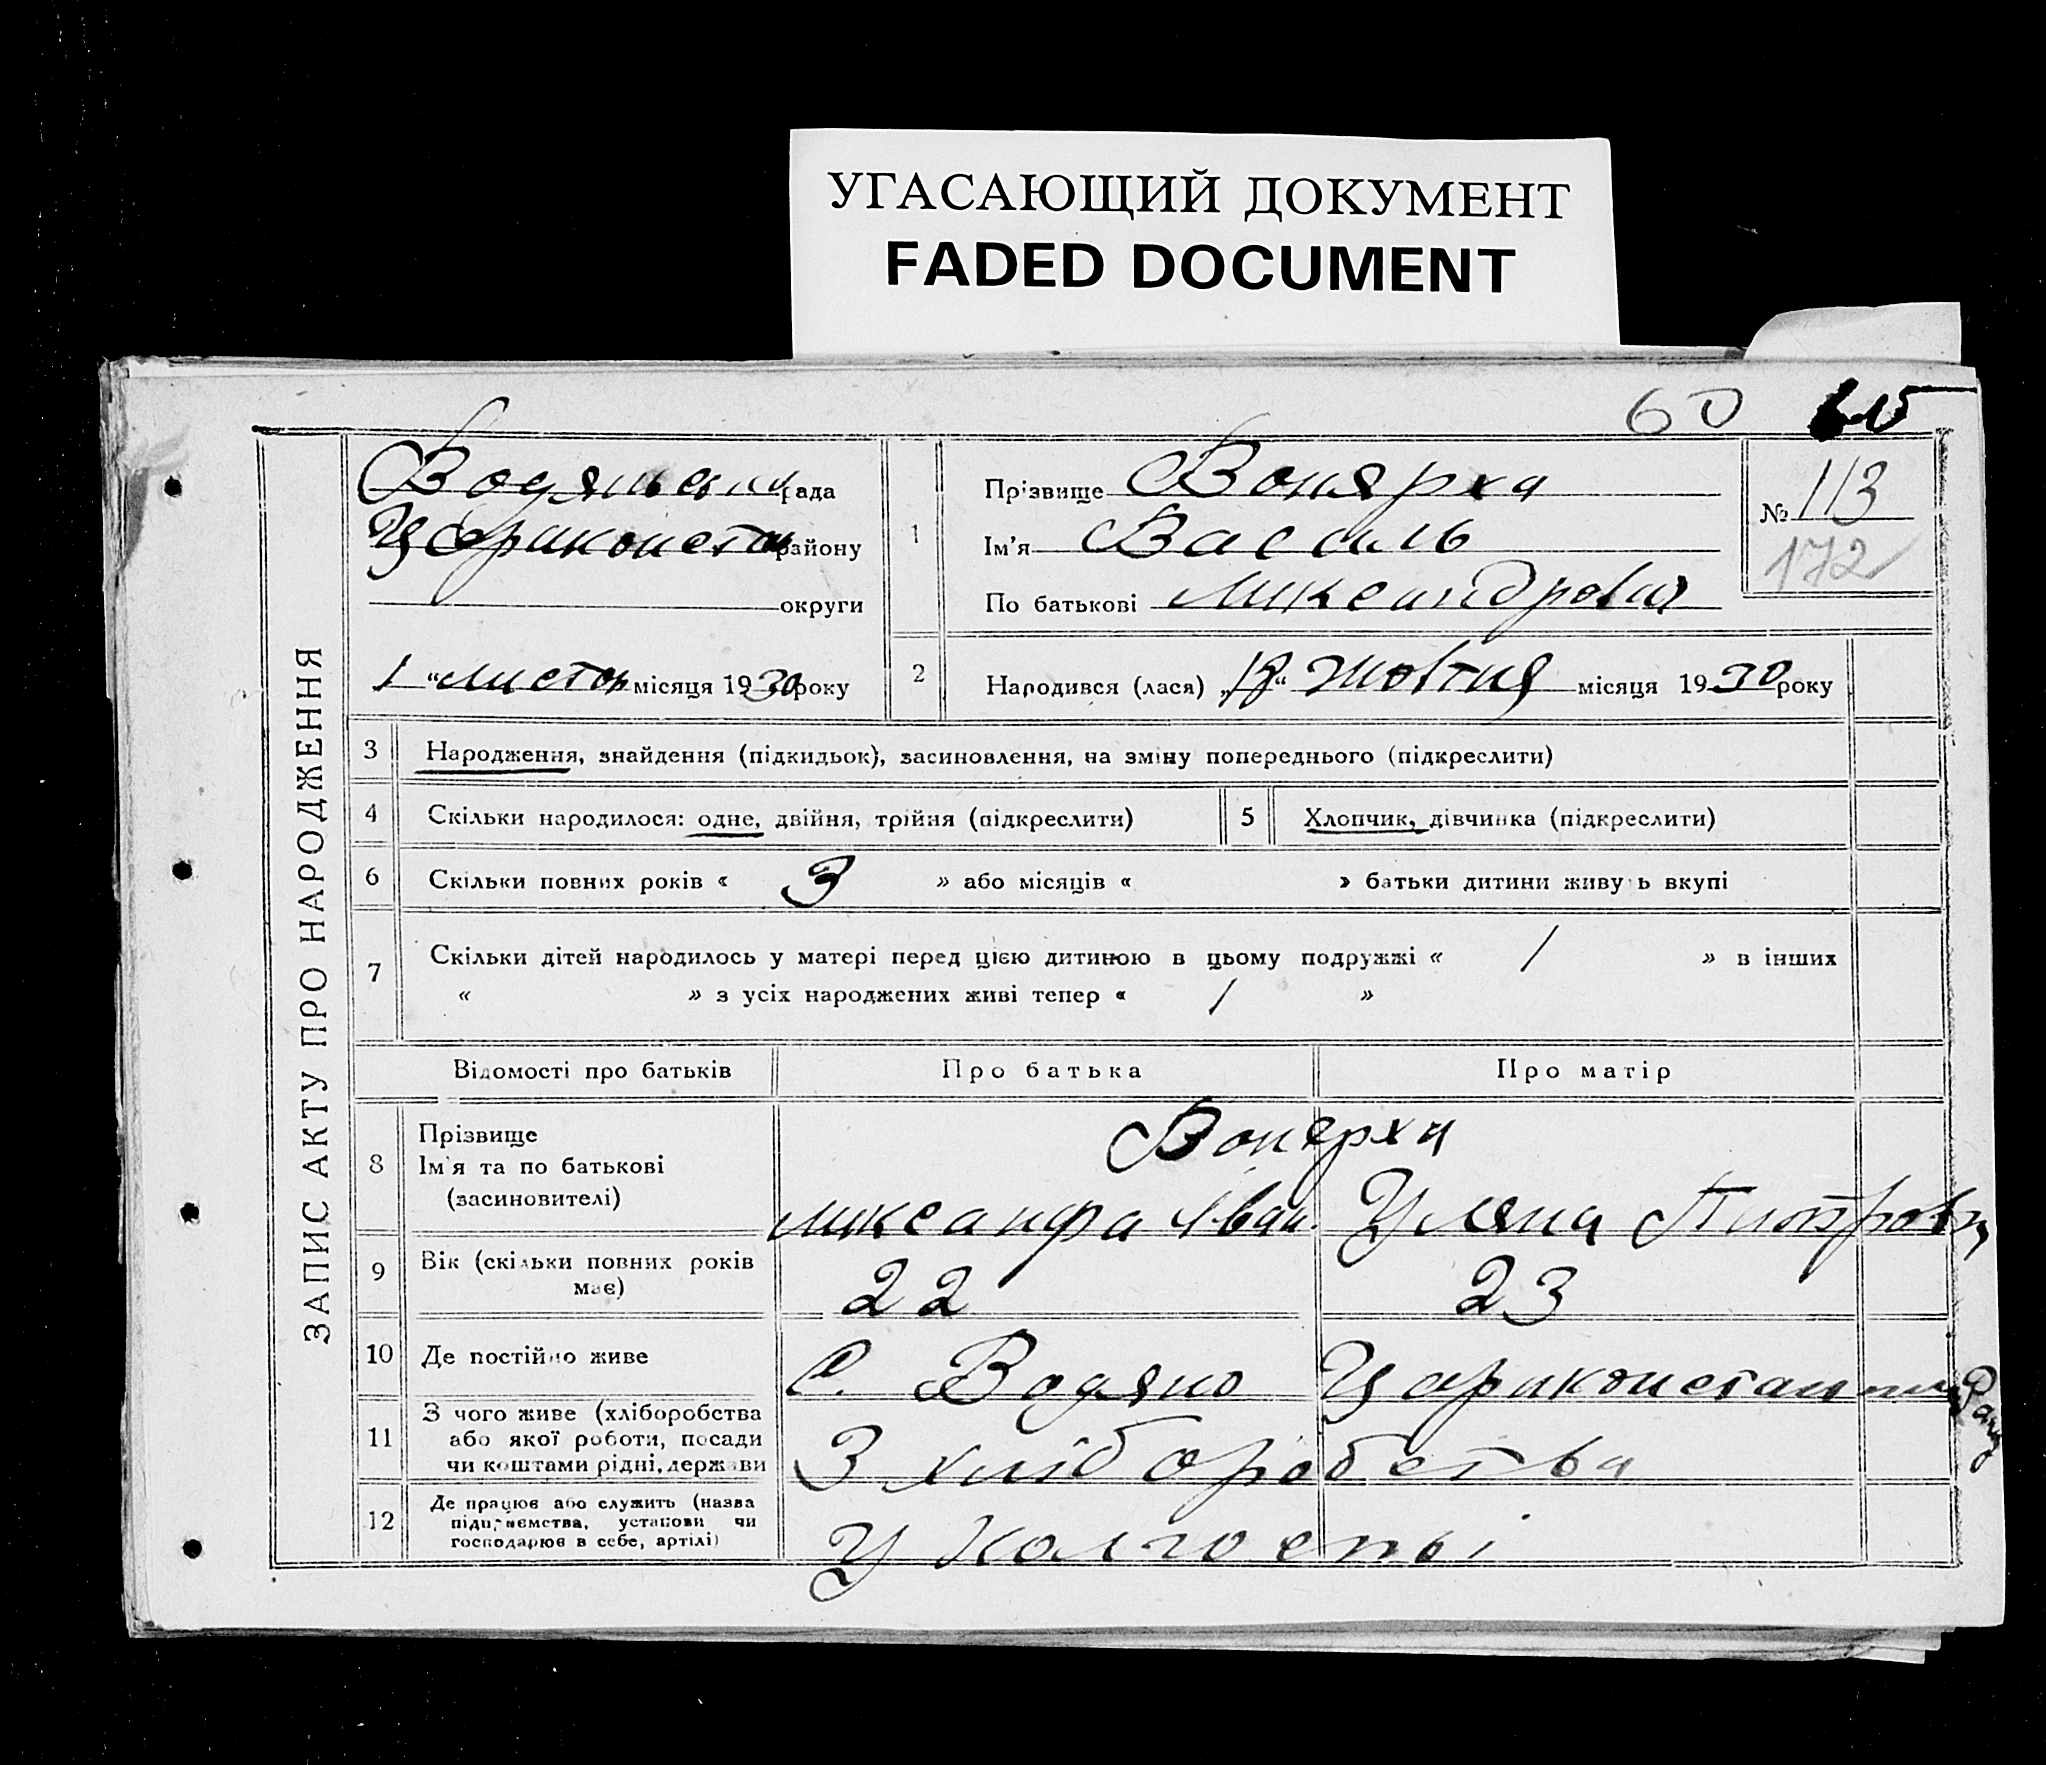 УГАСАЮЩИЙ ДОКУМЕНТ
FADED DOCUMENT
60
ЗАПИС АКТУ ПРО НАРОДЖЕННЯ
Водянська рада
Цариконстан району
округи
1 "листоп місяця 1930 року
1
Прізвище Вонярха
Ім'я Василь
По батькові Ликсандрович
№ 113
172
2
Народився (лася) „18“ жовтня місяця 1930 року
3 Народження, знайдення (підкидьок), засиновлення, на зміну попереднього (підкреслити)
4 Скільки народилося: одне, двійня, трійня (підкреслити) 5 Хлопчик, дівчинка (підкреслити)
6 Скільки повних років « 3 » або місяців « » батьки дитини живуть вкупі
7 Скільки дітей народилось у матері перед цією дитиною в цьому подружжі « 1 » в інших
« » з усіх народжених живі тепер « 1 »
Відомості про батьків Про батька Про матір
8 Прізвище
Ім'я та по батькові
(засиновителі)
Вонярха
Ликсандра Іван. Уляна
9 Вік (скільки повних років
має)
22 23
10 Де постійно живе С. Водяно Цариконстантин
11 З чого живе (хліборобства
або якої роботи, посади
чи коштами рідні, держави
З хліборобства
12 Де працює або служить (назва
підприємства, установи чи
господарює в себе, артілі)
У колгоспі